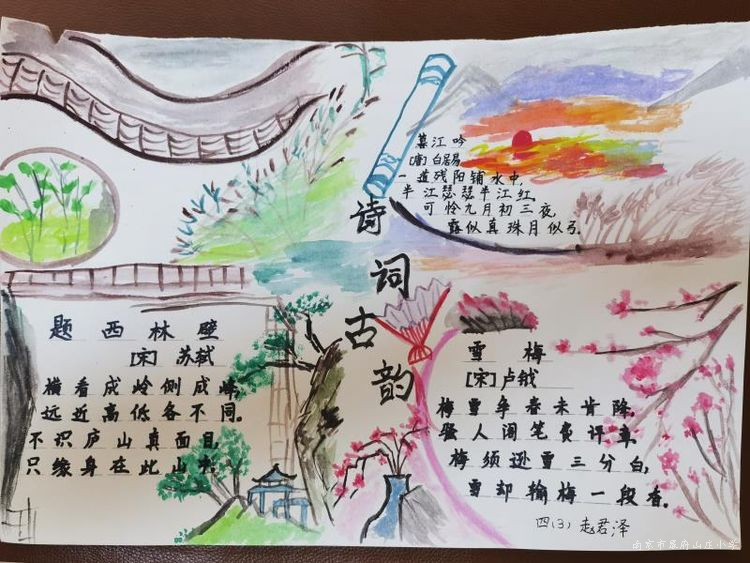 诗词古韵
暮江吟
[唐]白居易
一道残阳铺水中,
半江瑟瑟半江红.
可怜九月初三夜,
露似真珠月似弓.
题西林壁
[宋]苏轼
横看成岭侧成峰,
远近高低各不同.
不识庐山真面目,
只缘身在此山中.
雪梅
[宋]卢钺
梅雪争春未肯降,
骚人阁笔费评章.
梅须逊雪三分白,
雪却输梅一段香.
四(3) 赵君泽
南京市 府山庄小学